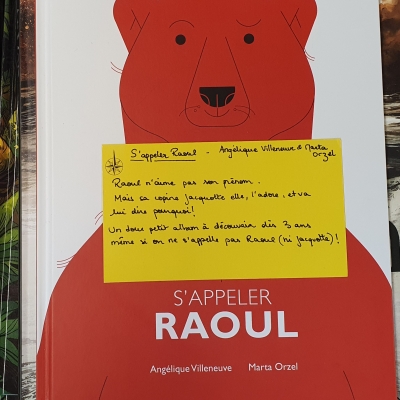 S'appeler Raoul - Angélique Villeneuve & Marta
Orzel
Raoul n'aime pas son prénom.
Mais sa copine Jacquotte elle, l'adore, et va
lui dire pourquoi!
Un doux petit album à découvrir dès 3 ans
même si on ne s'appelle pas Raoul (ni Jacquotte)!
S'APPELER
RAOUL
Angélique Villeneuve Marta Orzel